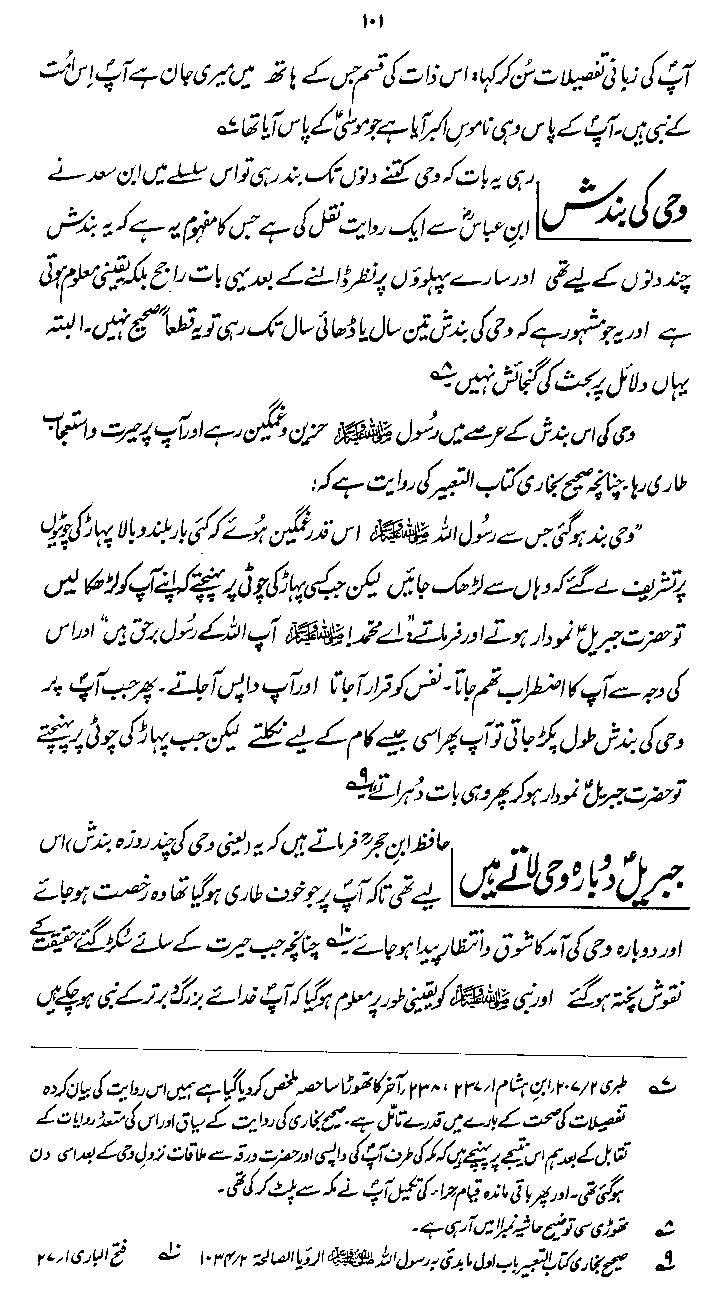 ۱۰۱
آپؐ کی زبانی تفصیلات سُن کر کہا: اس ذات کی قسم جس کے ہاتھ میں میری جان ہے آپؐ اِس اُمت
کے نبی ہیں۔ آپؐ کے پاس وہی ناموسِ اکبر آیا ہے جو موسیٰؑ کے پاس آیا تھا ۷ے
وحی کی بندش
رہی یہ بات کہ وحی کتنے دنوں تک بند رہی تو اس سلسلے میں ابن سعد نے
ابنِ عباسؓ سے ایک روایت نقل کی ہے جس کا مفہوم یہ ہے کہ یہ بندش
چند دنوں کے لیے تھی اور سارے پہلوؤں پر نظر ڈالنے کے بعد یہی بات راجح بلکہ یقینی معلوم ہوتی
ہے اور یہ جو مشہور ہے کہ وحی کی بندش تین سال یا ڈھائی سال تک رہی تو یہ قطعاً صحیح نہیں۔ البتہ
یہاں دلائل پر بحث کی گنجائش نہیں ۸ے
وحی کی اس بندش کے عرصے میں رسُول ﷺ حزین و غمگین رہے اور آپ پر حیرت و استعجاب
طاری رہا۔ چنانچہ صحیح بخاری کتاب التعبیر کی روایت ہے کہ:
”وحی بند ہوگئی جس سے رسُول اللہ ﷺ اس قدر غمگین ہُوئے کہ کئی بار بلند و بالا پہاڑ کی چوٹیوں
پر تشریف لے گئے کہ وہاں سے لڑھک جائیں لیکن جب کسی پہاڑ کی چوٹی پر پہنچتے کہ اپنے آپ کو لڑھکا لیں
تو حضرت جبریلؑ نمودار ہوتے اور فرماتے: ”اے محمد! ﷺ آپ اللہ کے رسُول برحق ہیں“ اور اس
کی وجہ سے آپ کا اضطراب تھم جاتا۔ نفس کو قرار آجاتا اور آپ واپس آجاتے۔ پھر جب آپؐ پر
وحی کی بندش طول پکڑ جاتی تو آپ پھر اسی جیسے کام کے لیے نکلتے لیکن جب پہاڑ کی چوٹی پر پہنچتے
تو حضرت جبریلؑ نمودار ہو کر پھر وہی بات دُہراتے ۹ے
جبریلؑ دوبارہ وحی لاتے ہیں
حافظ ابن حجرؒ فرماتے ہیں کہ یہ (یعنی وحی کی چند روزہ بندش) اس
لیے تھی تاکہ آپؐ پر جو خوف طاری ہوگیا تھا وہ رخصت ہو جائے
اور دوبارہ وحی کی آمد کا شوق و انتظار پیدا ہو جائے ۱۰ے چنانچہ جب حیرت کے سائے سُکڑ گئے، حقیقت کے
نقوش پختہ ہو گئے اور نبی ﷺ کو یقینی طور پر معلوم ہوگیا کہ آپؐ خدائے بزرگ و برتر کے نبی ہو چکے ہیں
۷ے طبری ۲/۲۰۷، ابن ہشام ۱/۲۳۷، ۲۳۸، آخر کا تھوڑا سا حصہ ملخص کر دیا گیا ہے ہمیں اس روایت کی بیان کردہ
تفصیلات کی صحت کے بارے میں قدرے تامّل ہے۔ صحیح بخاری کی روایت کے سیاق اور اس کی متعدد روایات کے
تقابل کے بعد ہم اس نتیجے پر پہنچے ہیں کہ مکہ کی طرف آپؐ کی واپسی اور حضرت ورقہ سے ملاقات نزولِ وحی کے بعد اسی دن
ہوگئی تھی۔ اور پھر باقی ماندہ قیام حرا۔ کی تکمیل آپؐ نے مکہ سے پلٹ کر کی تھی۔
۸ے تھوڑی سی توضیح حاشیہ نمبر ۱۱ میں آرہی ہے۔
۹ے صحیح بخاری کتاب التعبیر باب اول ما بدئ بہ رسول اللہ ﷺ الرؤیا الصالحۃ ۲/۱۰۳۴ ۱۰ے فتح الباری ۱/۲۷